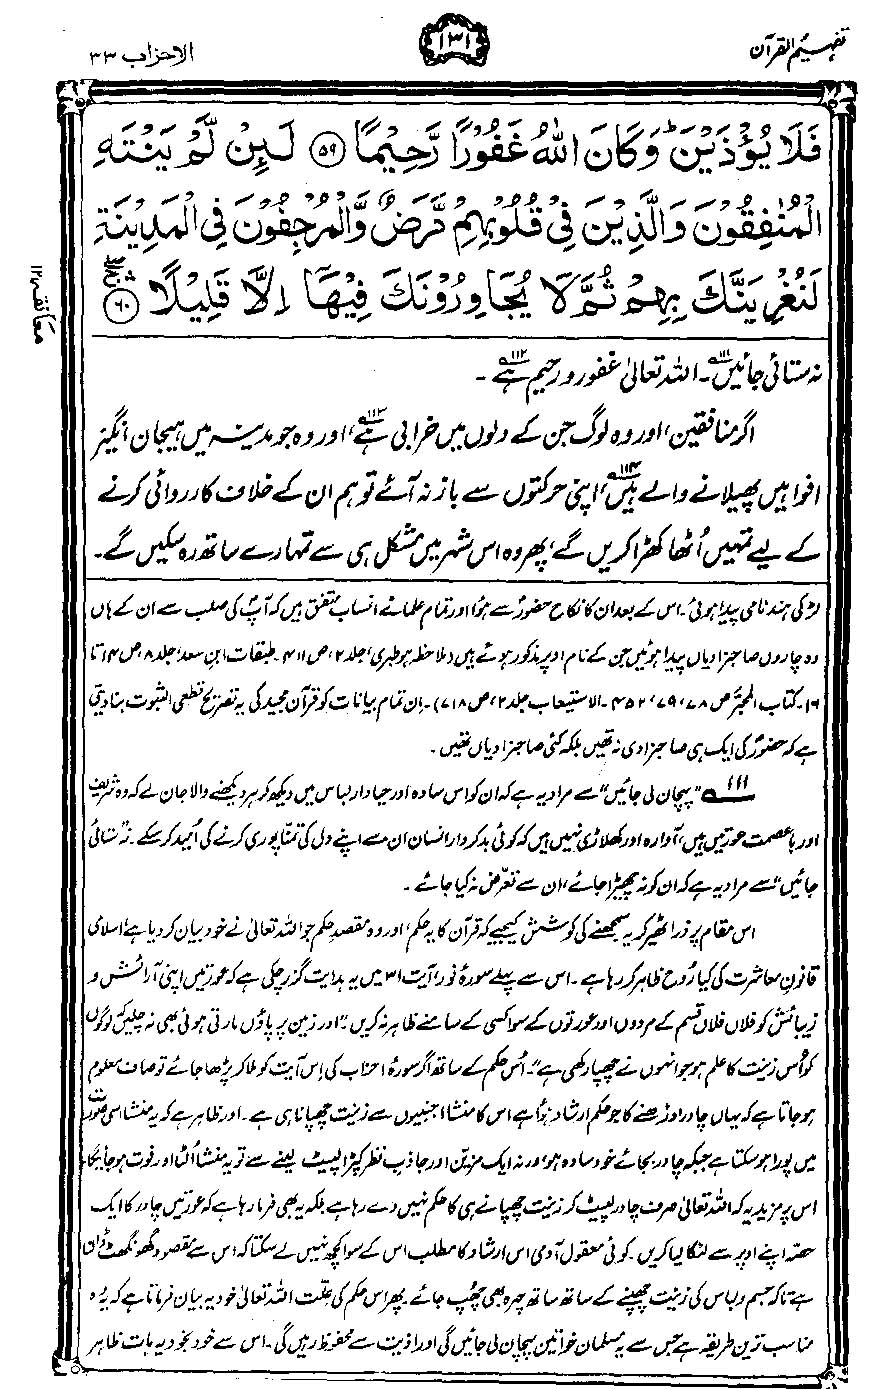 تفہیم القرآن
۱۳۱
الاحزاب ۳۳
فَلَا يُؤْذَيْنَ ؕ وَكَانَ اللّٰهُ غَفُوْرًا رَّحِيْمًا ۝۵۹ لَىِٕنْ لَّمْ يَنْتَهِ
الْمُنٰفِقُوْنَ وَالَّذِيْنَ فِىْ قُلُوْبِهِمْ مَّرَضٌ وَّالْمُرْجِفُوْنَ فِى الْمَدِيْنَةِ
لَنُغْرِيَنَّكَ بِهِمْ ثُمَّ لَا يُجَاوِرُوْنَكَ فِيْهَاۤ اِلَّا قَلِيْلًا ۝۶۰
معانقہ ۱۲
نہ ستائی جائیں۱۱۱۔ اللہ تعالیٰ غفور و رحیم ہے۱۱۲۔
اگر منافقین، اور وہ لوگ جن کے دلوں میں خرابی ہے۱۱۳، اور وہ جو مدینہ میں ہیجان انگیز
افواہیں پھیلانے والے ہیں۱۱۴، اپنی حرکتوں سے باز نہ آئے تو ہم ان کے خلاف کارروائی کرنے
کے لیے تمہیں اُٹھا کھڑا کریں گے، پھر وہ اس شہر میں مشکل ہی سے تمہارے ساتھ رہ سکیں گے۔
لڑکی ہند نامی پیدا ہوئی۔ اس کے بعد ان کا نکاح حضورؐ سے ہوا اور تمام علمائے انساب متفق ہیں کہ آپؐ کی صلب سے ان کے ہاں
وہ چاروں صاحبزادیاں پیدا ہوئیں جن کے نام اوپر مذکور ہوئے ہیں (ملاحظہ ہو طبری، جلد ۲، ص ۴۱۱۔ طبقات ابن سعد، جلد ۸، ص ۱۴ تا
۱۶۔ کتاب المحبَّر ص ۷۸، ۷۹، ۴۵۲۔ الاستیعاب جلد ۲، ص ۷۱۸)۔ اِن تمام بیانات کو قرآن مجید کی یہ تصریح قطعی الثبوت بنا دیتی
ہے کہ حضورؐ کی ایک ہی صاحبزادی نہ تھیں بلکہ کئی صاحبزادیاں تھیں۔
۱۱۱ ”پہچان لی جائیں“ سے مراد یہ ہے کہ ان کو اس سادہ اور حیادار لباس میں دیکھ کر ہر دیکھنے والا جان لے کہ وہ شریف
اور باعصمت عورتیں ہیں، آوارہ اور کھلاڑی نہیں ہیں کہ کوئی بدکردار انسان ان سے اپنے دل کی تمنا پوری کرنے کی اُمید کر سکے۔ ”نہ ستائی
جائیں“ سے مراد یہ ہے کہ ان کو نہ چھیڑا جائے، ان سے تعرّض نہ کیا جائے۔
اس مقام پر ذرا ٹھیر کر یہ سمجھنے کی کوشش کیجیے کہ قرآن کا یہ حکم، اور وہ مقصدِ حکم جو اللہ تعالیٰ نے خود بیان کر دیا ہے، اسلامی
قانونِ معاشرت کی کیا رُوح ظاہر کر رہا ہے۔ اس سے پہلے سورۂ نور، آیت ۳۱ میں یہ ہدایت گزر چکی ہے کہ عورتیں اپنی آرائش و
زیبائش کو فلاں فلاں قسم کے مردوں اور عورتوں کے سوا کسی کے سامنے ظاہر نہ کریں۔ ”اور زمین پر پاؤں مارتی ہوئی بھی نہ چلیں کہ لوگوں
کو اُس زینت کا علم ہو جو انہوں نے چھپا رکھی ہے“۔ اُس حکم کے ساتھ اگر سورۂ احزاب کی اِس آیت کو ملا کر پڑھا جائے تو صاف معلوم
ہو جاتا ہے کہ یہاں چادر اوڑھنے کا جو حکم ارشاد ہوا ہے اس کا منشا اجنبیوں سے زینت چھپانا ہی ہے۔ اور ظاہر ہے کہ یہ منشا اسی صورت
میں پورا ہو سکتا ہے جبکہ چادر بجائے خود سادہ ہو، ورنہ ایک مزیّن اور جاذب نظر کپڑا لپیٹ لینے سے تو یہ منشا اُلٹا اور فوت ہو جائیگا۔
اس پر مزید یہ کہ اللہ تعالیٰ صرف چادر لپیٹ کر زینت چھپانے ہی کا حکم نہیں دے رہا ہے بلکہ یہ بھی فرما رہا ہے کہ عورتیں چادر کا ایک
حصہ اپنے اوپر سے لٹکا لیا کریں۔ کوئی معقول آدمی اس ارشاد کا مطلب اس کے سوا کچھ نہیں لے سکتا کہ اس سے مقصود گھونگھٹ ڈالنا
ہے تاکہ جسم و لباس کی زینت چھپنے کے ساتھ ساتھ چہرہ بھی چُھپ جائے۔ پھر اس حکم کی علّت اللہ تعالیٰ خود یہ بیان فرماتا ہے کہ یہ وہ
مناسب ترین طریقہ ہے جس سے یہ مسلمان خواتین پہچان لی جائیں گی اور اذیت سے محفوظ رہیں گی۔ اس سے خود بخود یہ بات ظاہر